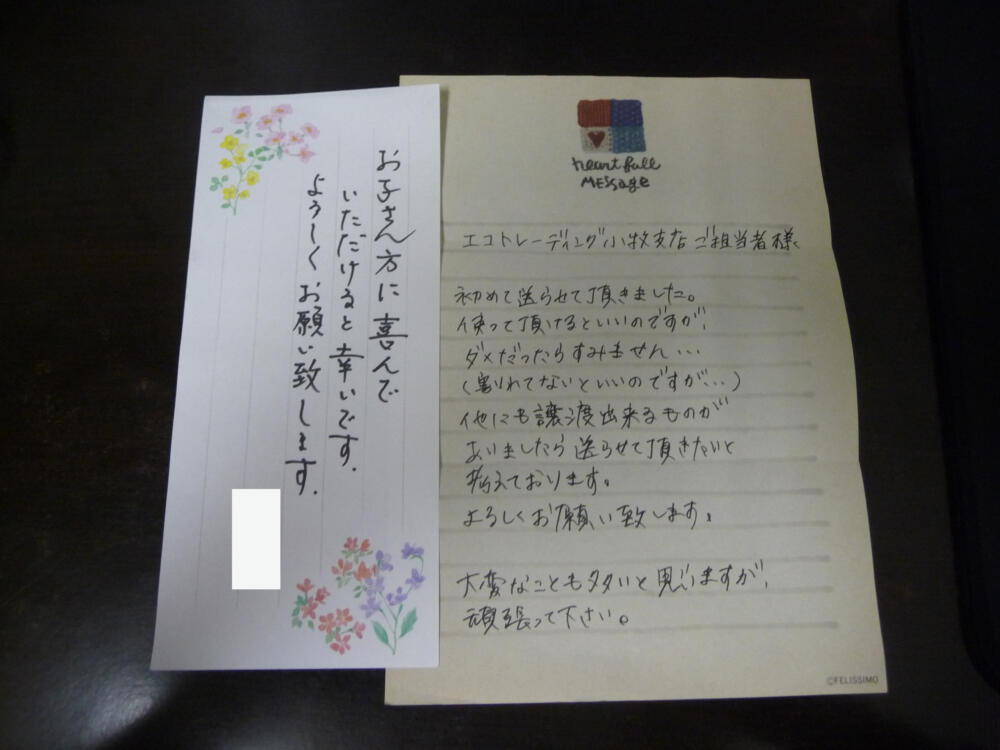 お子さん方に喜んで
いただけると幸いです。
よろしくお願い致します。
heartfull
MESSage
エコトレーディング小牧支店ご担当者様
初めて送らせて頂きました。
使って頂けるといいのですが、
ダメだったらすみません…
(割れてないといいのですが…)
他にも譲渡出来るものが
ありましたら送らせて頂きたいと
考えております。
よろしくお願い致します。
大変なことも多いと思いますが、
頑張って下さい。
©FELISSIMO